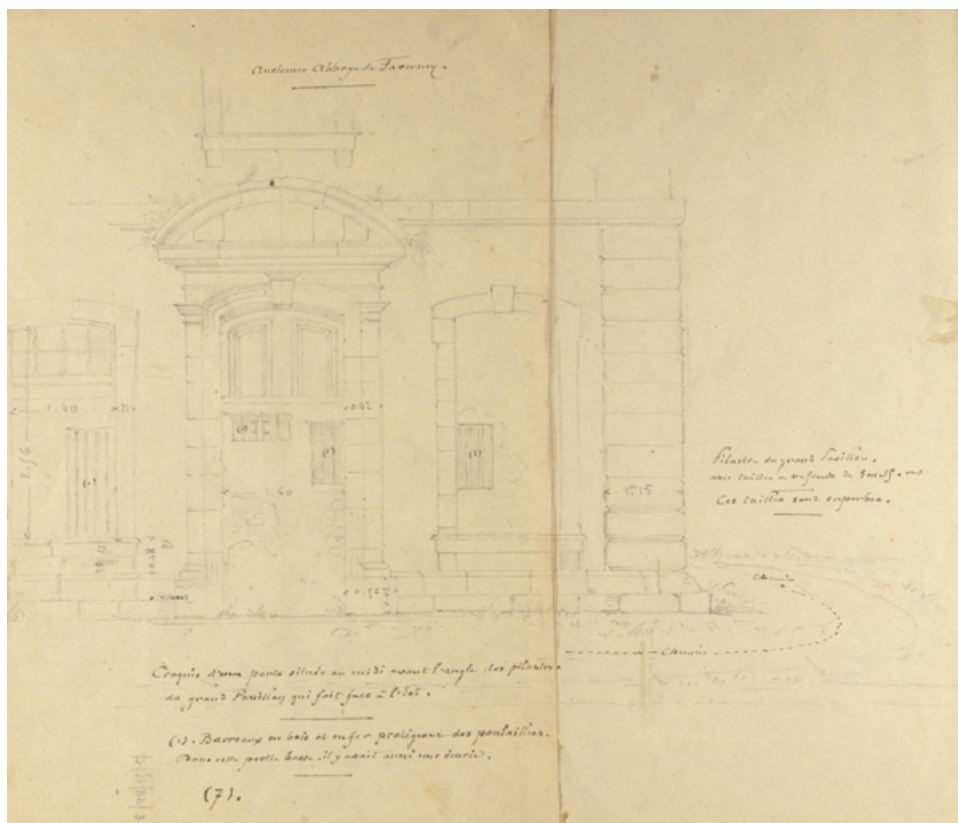 Ancienne Abbaye de Faverney.
1.40
2.56
(1)
(1)
(1)
(1)
0.42
1.60
1.15
Pilastre du grand Pavillon.
avec tailles à refends de
Ces tailles sont superbes.
Chemin
Chemin
Croquis d'une porte située au midi avant l'angle des pilastres
du grand Pavillon qui fait face à l'Est.
(1). Barreaux en bois et en fer protégeant des poulaillers.
Dans cette partie basse, il y avait aussi une écurie.
(7).